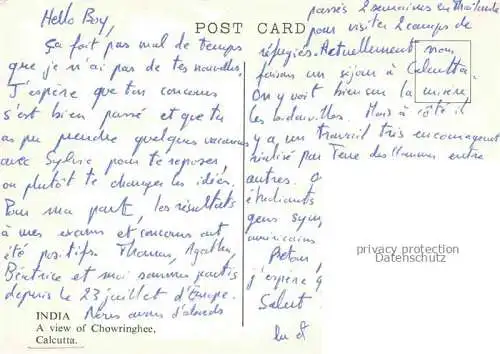 Hello Boy,
Ça fait pas mal de temps
que je n'ai pas de tes nouvelles.
J'espère que ton concours
s'est bien passé et que tu
as pu prendre quelques vacances
avec Sylvie pour te reposer,
ou plutôt te changer les idées.
Pour ma part, les résultats
à mes exams et concours ont
été positifs. Thomas, Agathe,
Béatrice et moi sommes partis
depuis le 23 juillet d'Europe.
Nous avons d'abords
INDIA
A view of Chowringhee,
Calcutta.
POST CARD
passés 2 semaines en Thaïlande
pour visiter 2 camps de
réfugiés. Actuellement nous
faisons un séjour à
Calcutta.
On y voit bien sûr la misère,
les bidonvilles. Mais à côté il
y a un travail très encourageant
réalisé par Terre des Hommes entre
autres.
étudiants
gens sym
américains
j'espère q
Salut
privacy protection
Datenschutz